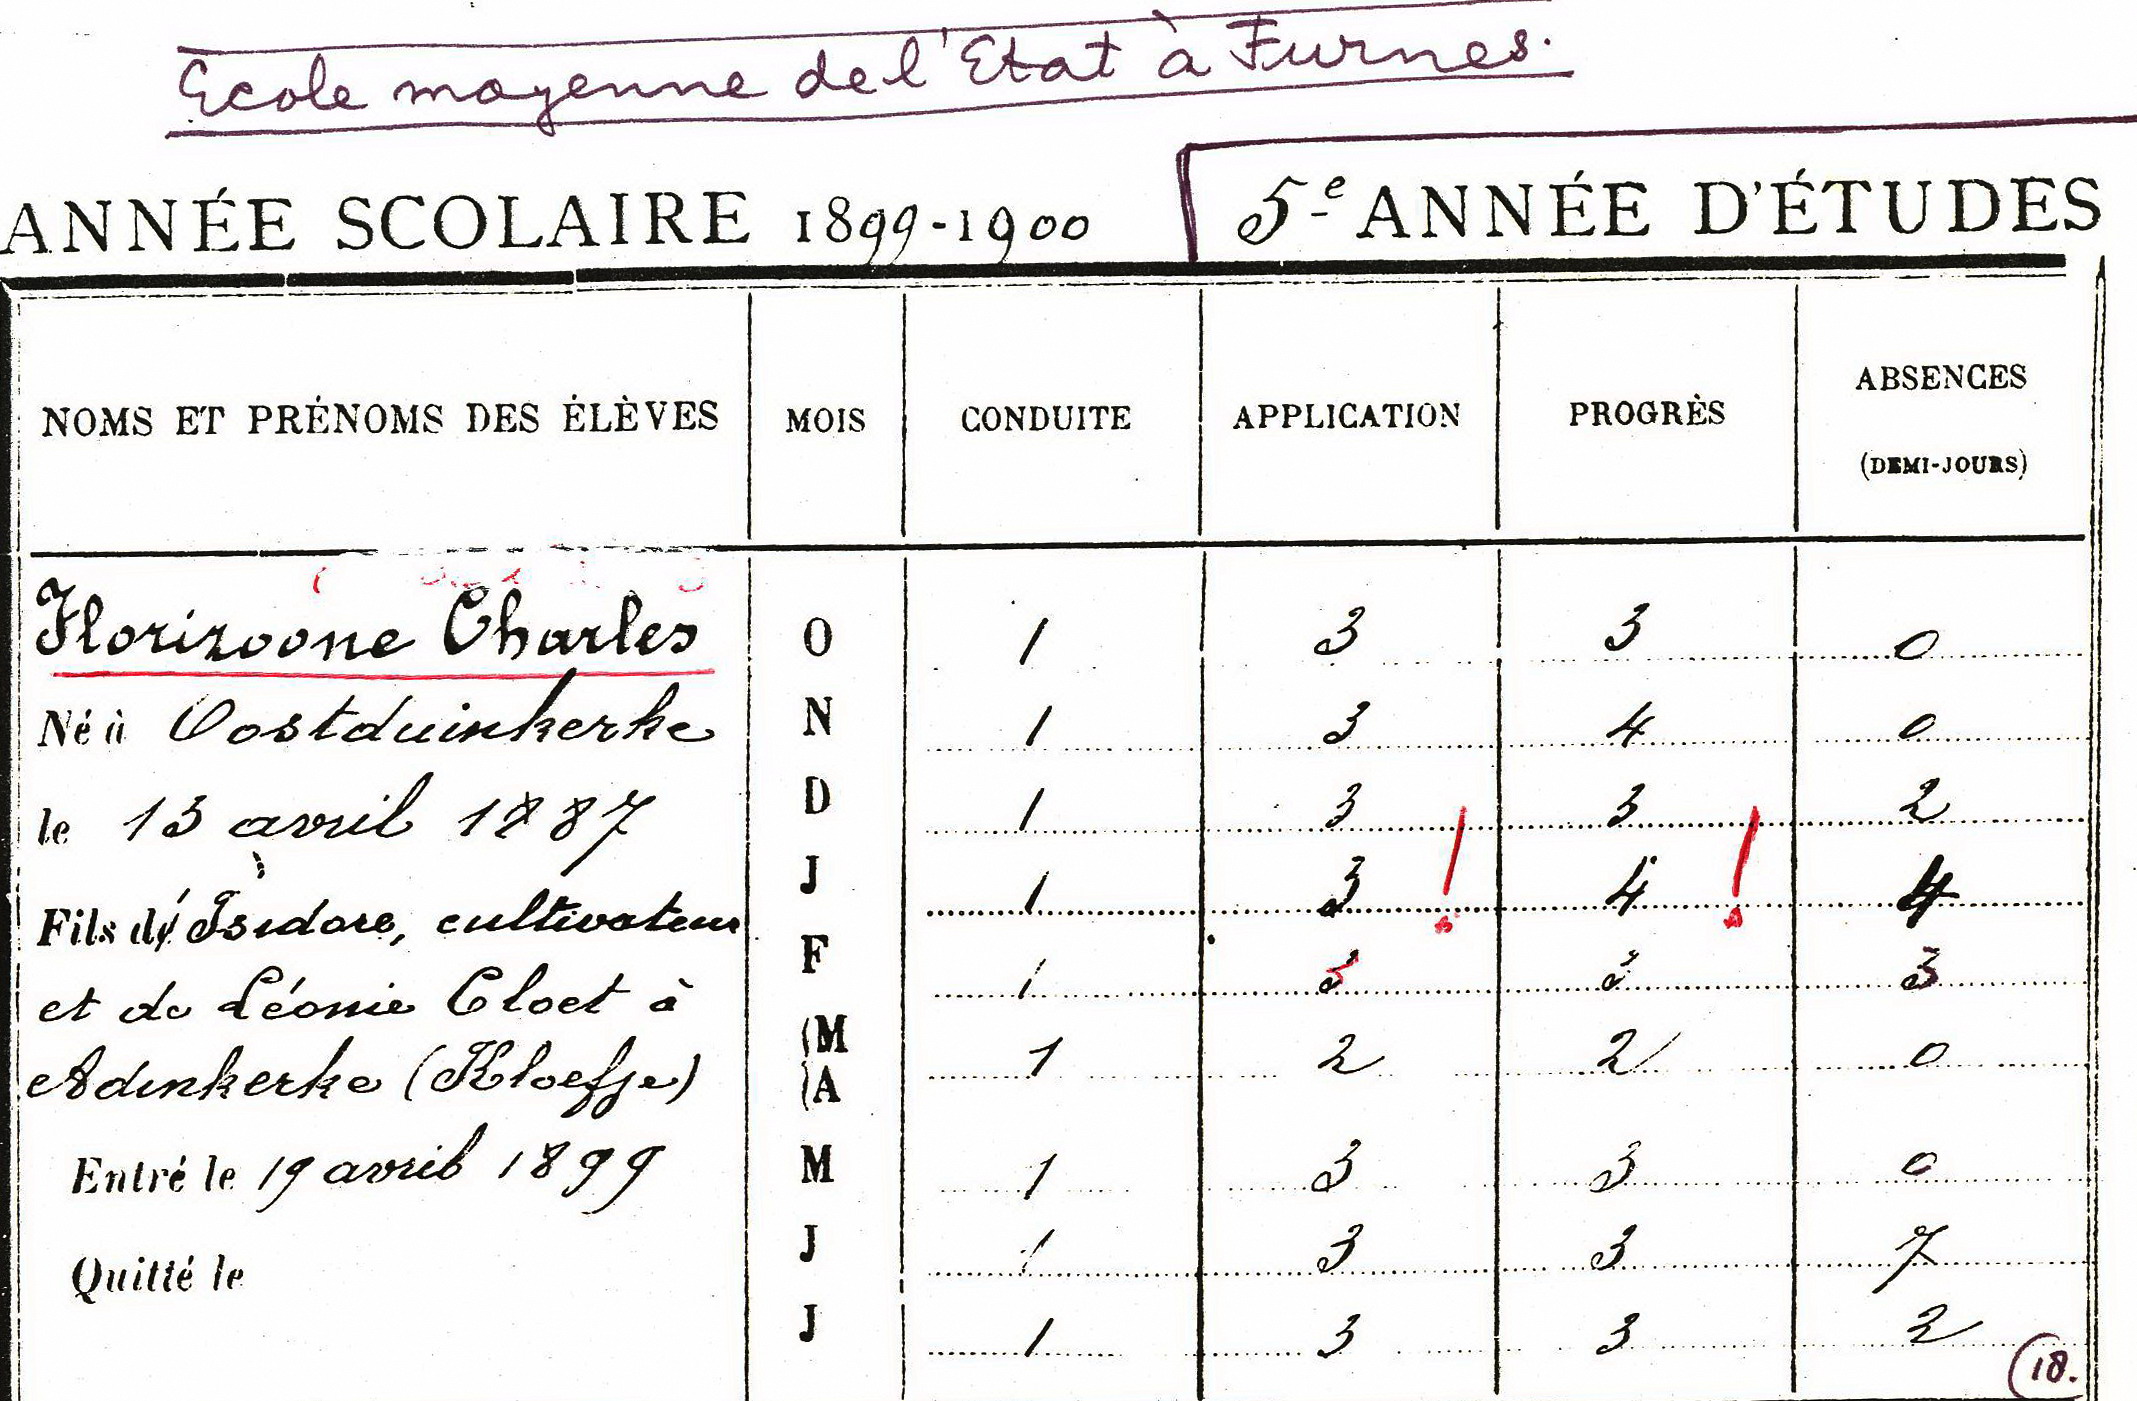 Ecole moyenne de l'Etat à Furnes.
ANNÉE SCOLAIRE 1899-1900 5e ANNÉE D'ÉTUDES
NOMS ET PRÉNOMS DES ÉLÈVES MOIS CONDUITE APPLICATION PROGRÈS ABSENCES (DEMI-JOURS)
Florizoone Charles O 1 3 3 0
Né à Oostduinkerke N 1 3 4 0
le 13 avril 1887 D 1 3 3 2
J 1 3 ! 4 ! 4
Fils d'Isidore, cultivateur F 1 3 3 3
et de Léonie Cloet à
Adinkerke (Kloefje) (M (A 1 2 2 0
Entré le 19 avril 1899 M 1 3 3 0
Quitté le J 1 3 3 7
J 1 3 3 2
18.